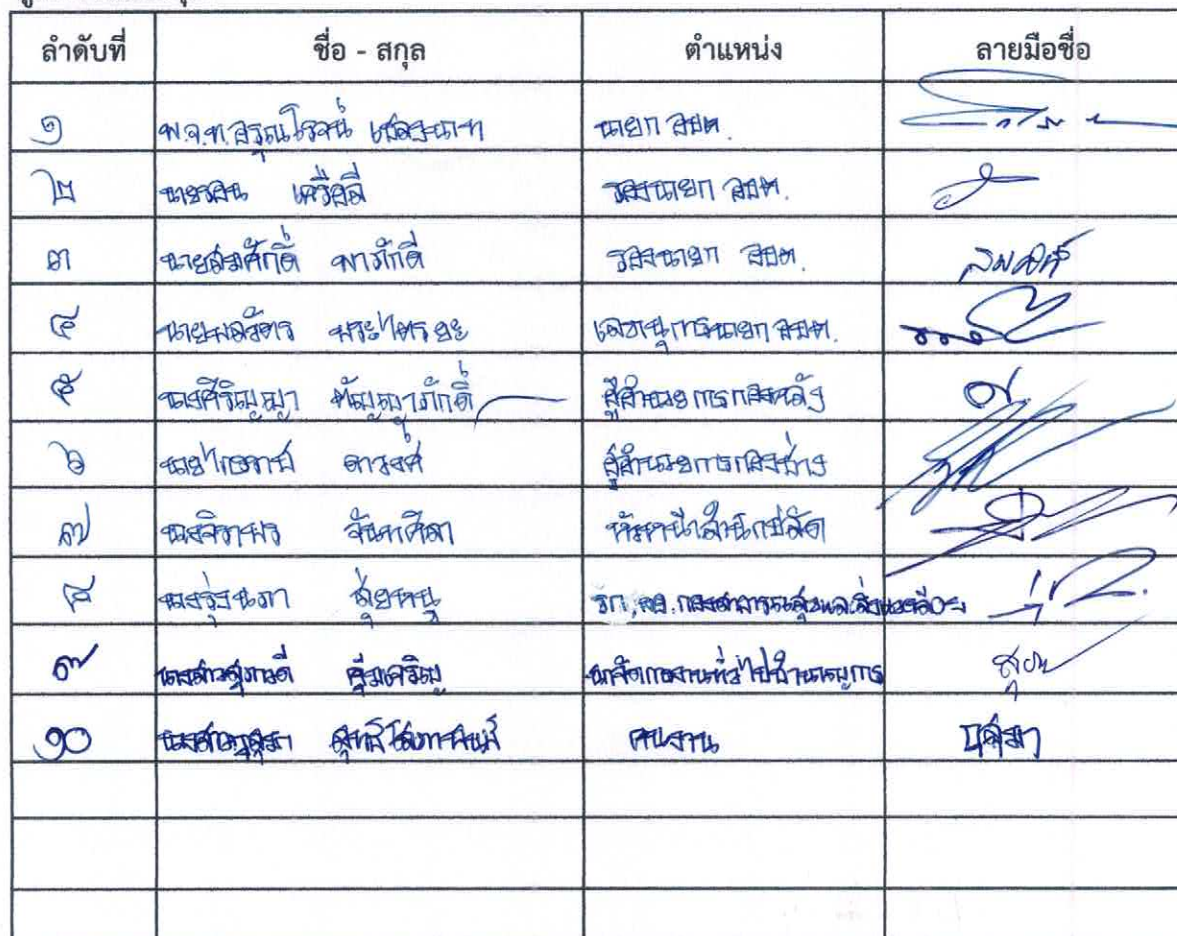 ลำดับที่ ชื่อ - สกุล ตำแหน่ง ลายมือชื่อ
๑ พ.จ.ท.อรุณโรจน์ นายก อบต.
๒ นายรอน เครือลี รองนายก อบต.
๓ นายสมศักดิ์ พาภักดี รองนายก อบต. สมศักดิ์
๔ นายพลวัตร พระไตรยะ เลขานุการนายก อบต.
๕ นางศิริญญา ทัญญาภักดิ์ ผู้อำนวยการกองคลัง
๖ นายไกรราช ดาวงศ์ ผู้อำนวยการกองช่าง
๗ นางจิราพร จันทาศิลา หัวหน้าสำนักปลัด
๘ นางรุ่งนภา สุ่ยหนู รก.ผอ.กองสาธารณสุขและสิ่งแวดล้อม
๙ นางสาวสุภาวดี คุ้มเจริญ นักจัดการงานทั่วไปชำนาญการ
๑๐ คนงาน